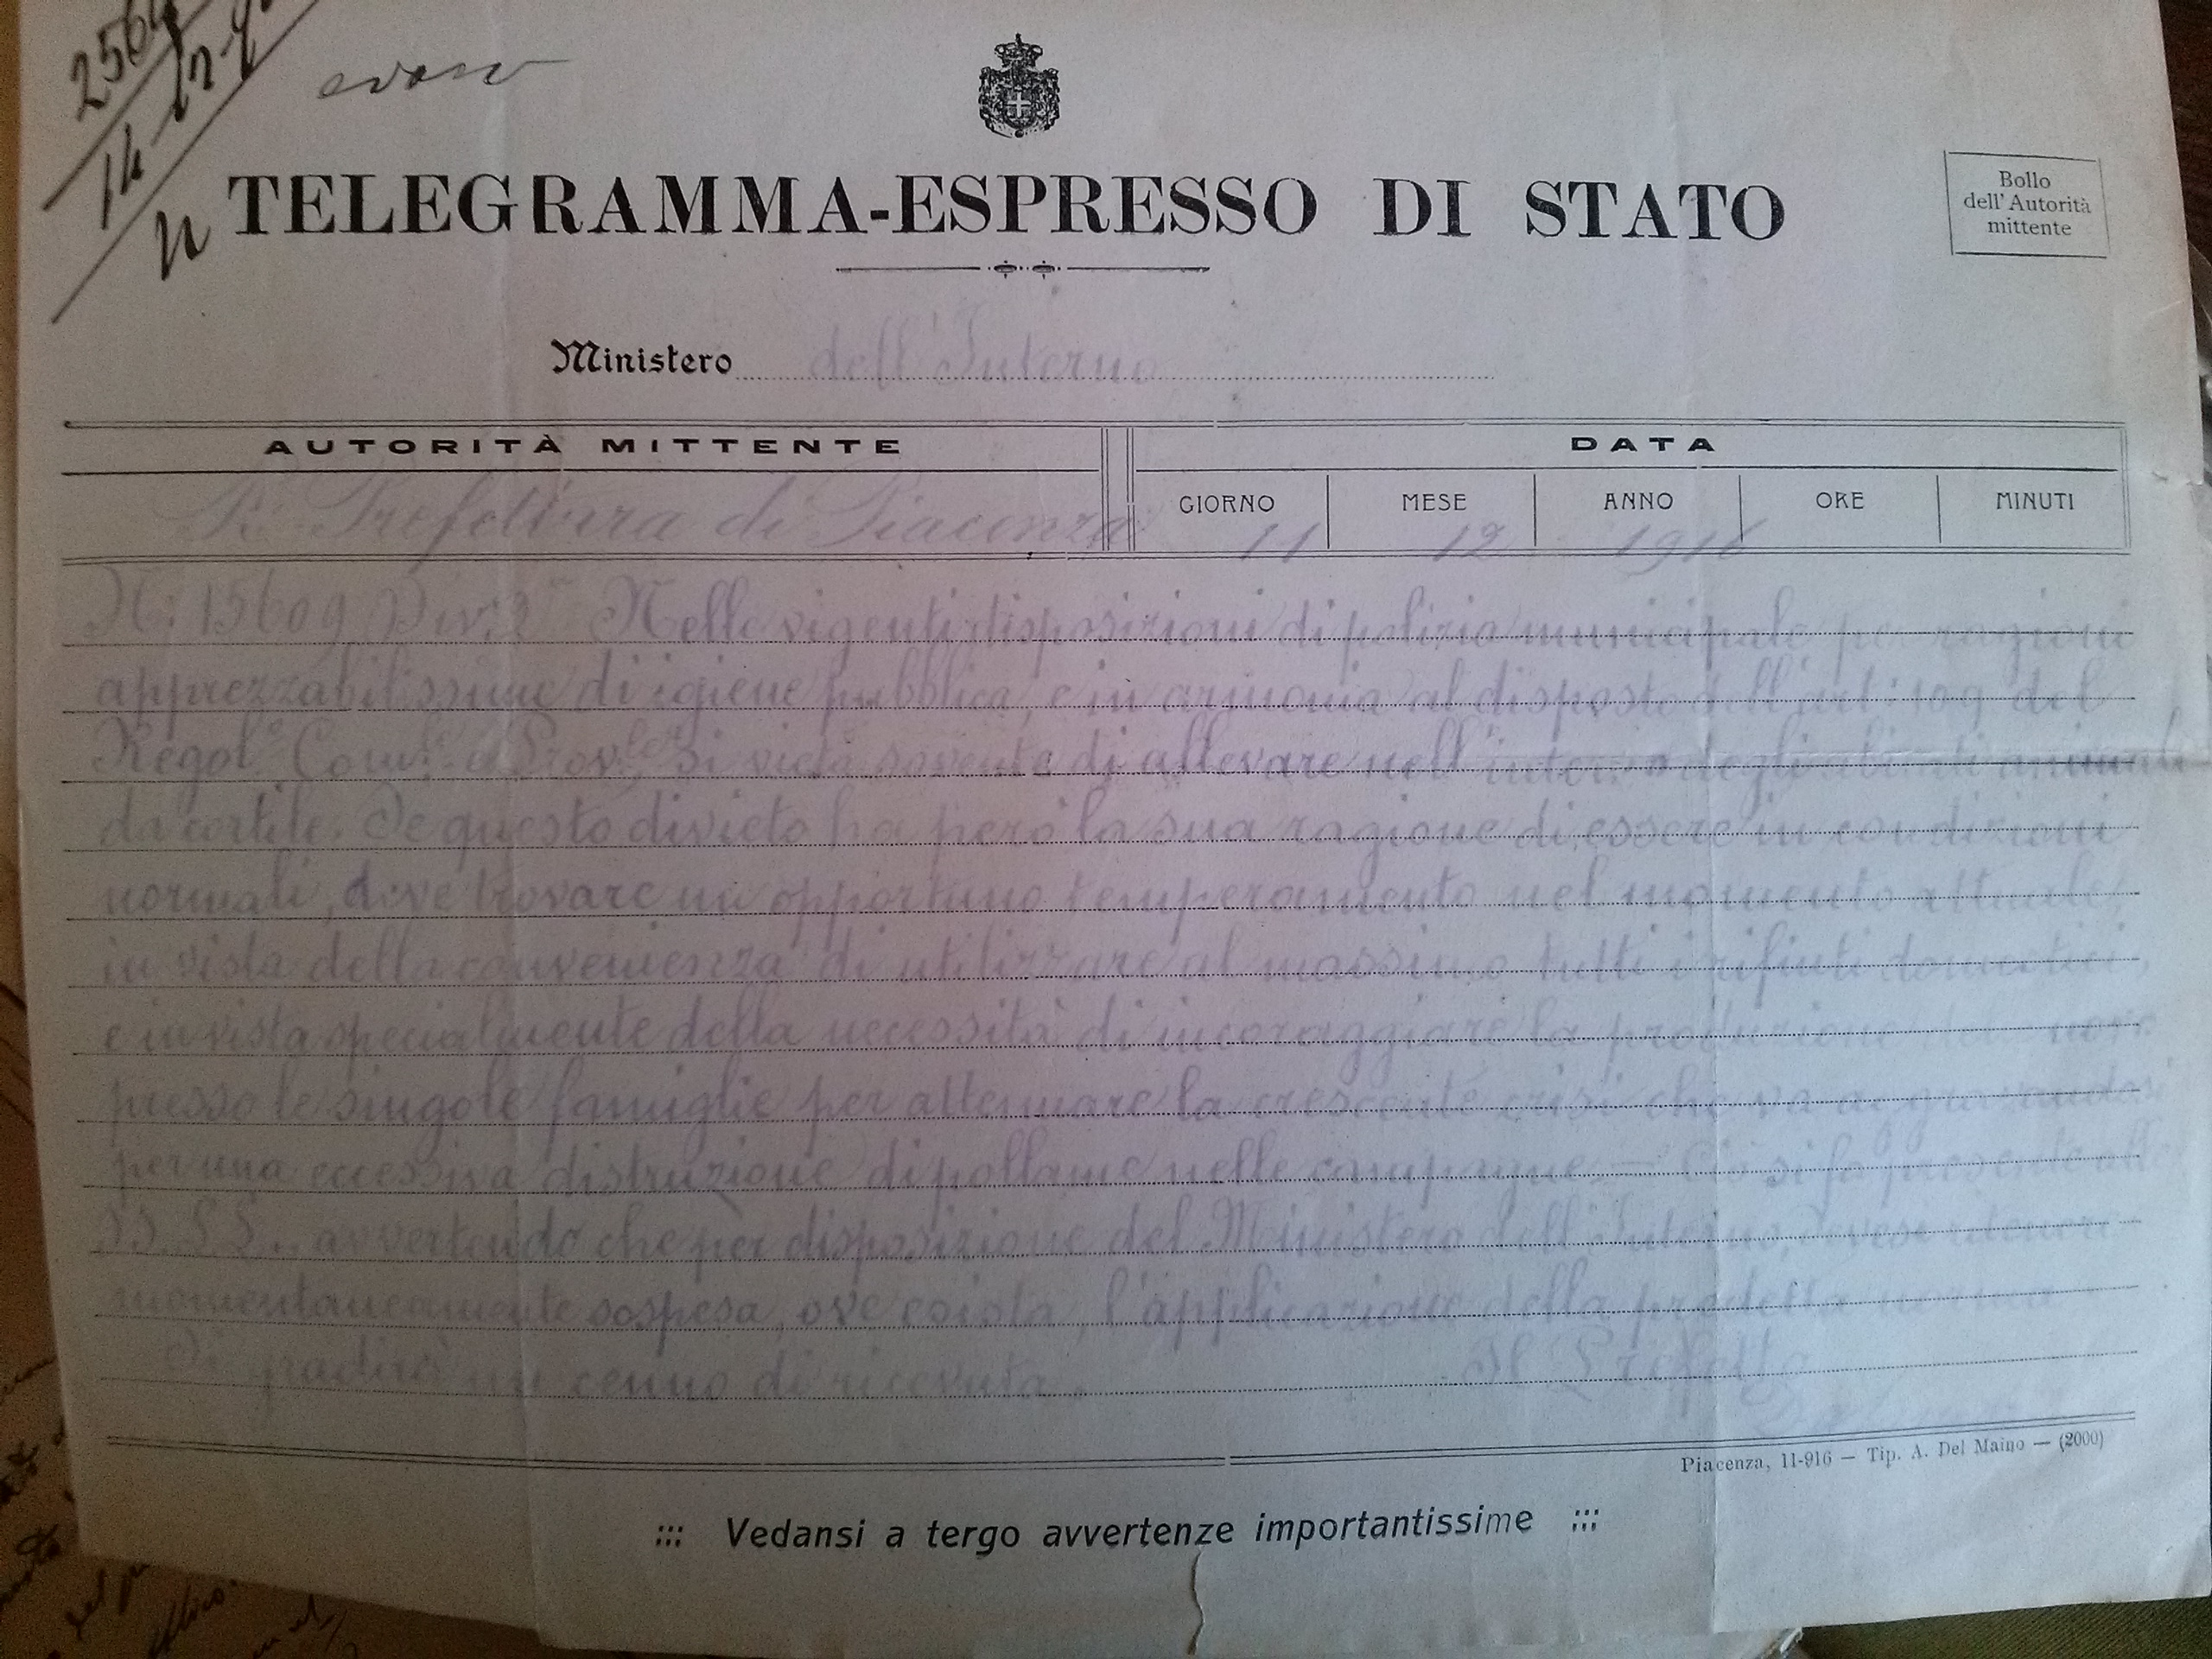 evaso
TELEGRAMMA-ESPRESSO DI STATO
Bollo
dell'Autorità
mittente
Ministero dell'Interno
AUTORITÀ MITTENTE
DATA
GIORNO MESE ANNO ORE MINUTI
R. Prefettura di Piacenza 11 12 1916
N: 15609 Div: Nelle vigenti disposizioni di polizia municipale per ragioni
apprezzabilissime di igiene pubblica, e in armonia al disposto dell'art: 109 del
Regol.º Com.le e Prov.le si vieta sovente di allevare nell'interno degli abitati animali
da cortile. Se questo divieto ha però la sua ragione di essere in condizioni
normali, deve trovare un opportuno temperamento nel momento attuale,
in vista della convenienza di utilizzare al massimo tutti i rifiuti domestici,
e in vista specialmente della necessità di incoraggiare la produzione
presso le singole famiglie per attenuare la crescente crisi che va aggravandosi
per una eccessiva distruzione di pollame nelle campagne — Ciò si fa presente alle
SS. LL. avvertendo che per disposizione del Ministero dell'Interno, devesi ritenere
momentaneamente sospesa, ove esista, l'applicazione della predetta
Si gradirà un cenno di ricevuta. Il Prefetto
Piacenza, 11-916 — Tip. A. Del Maino — (2000)
::: Vedansi a tergo avvertenze importantissime :::